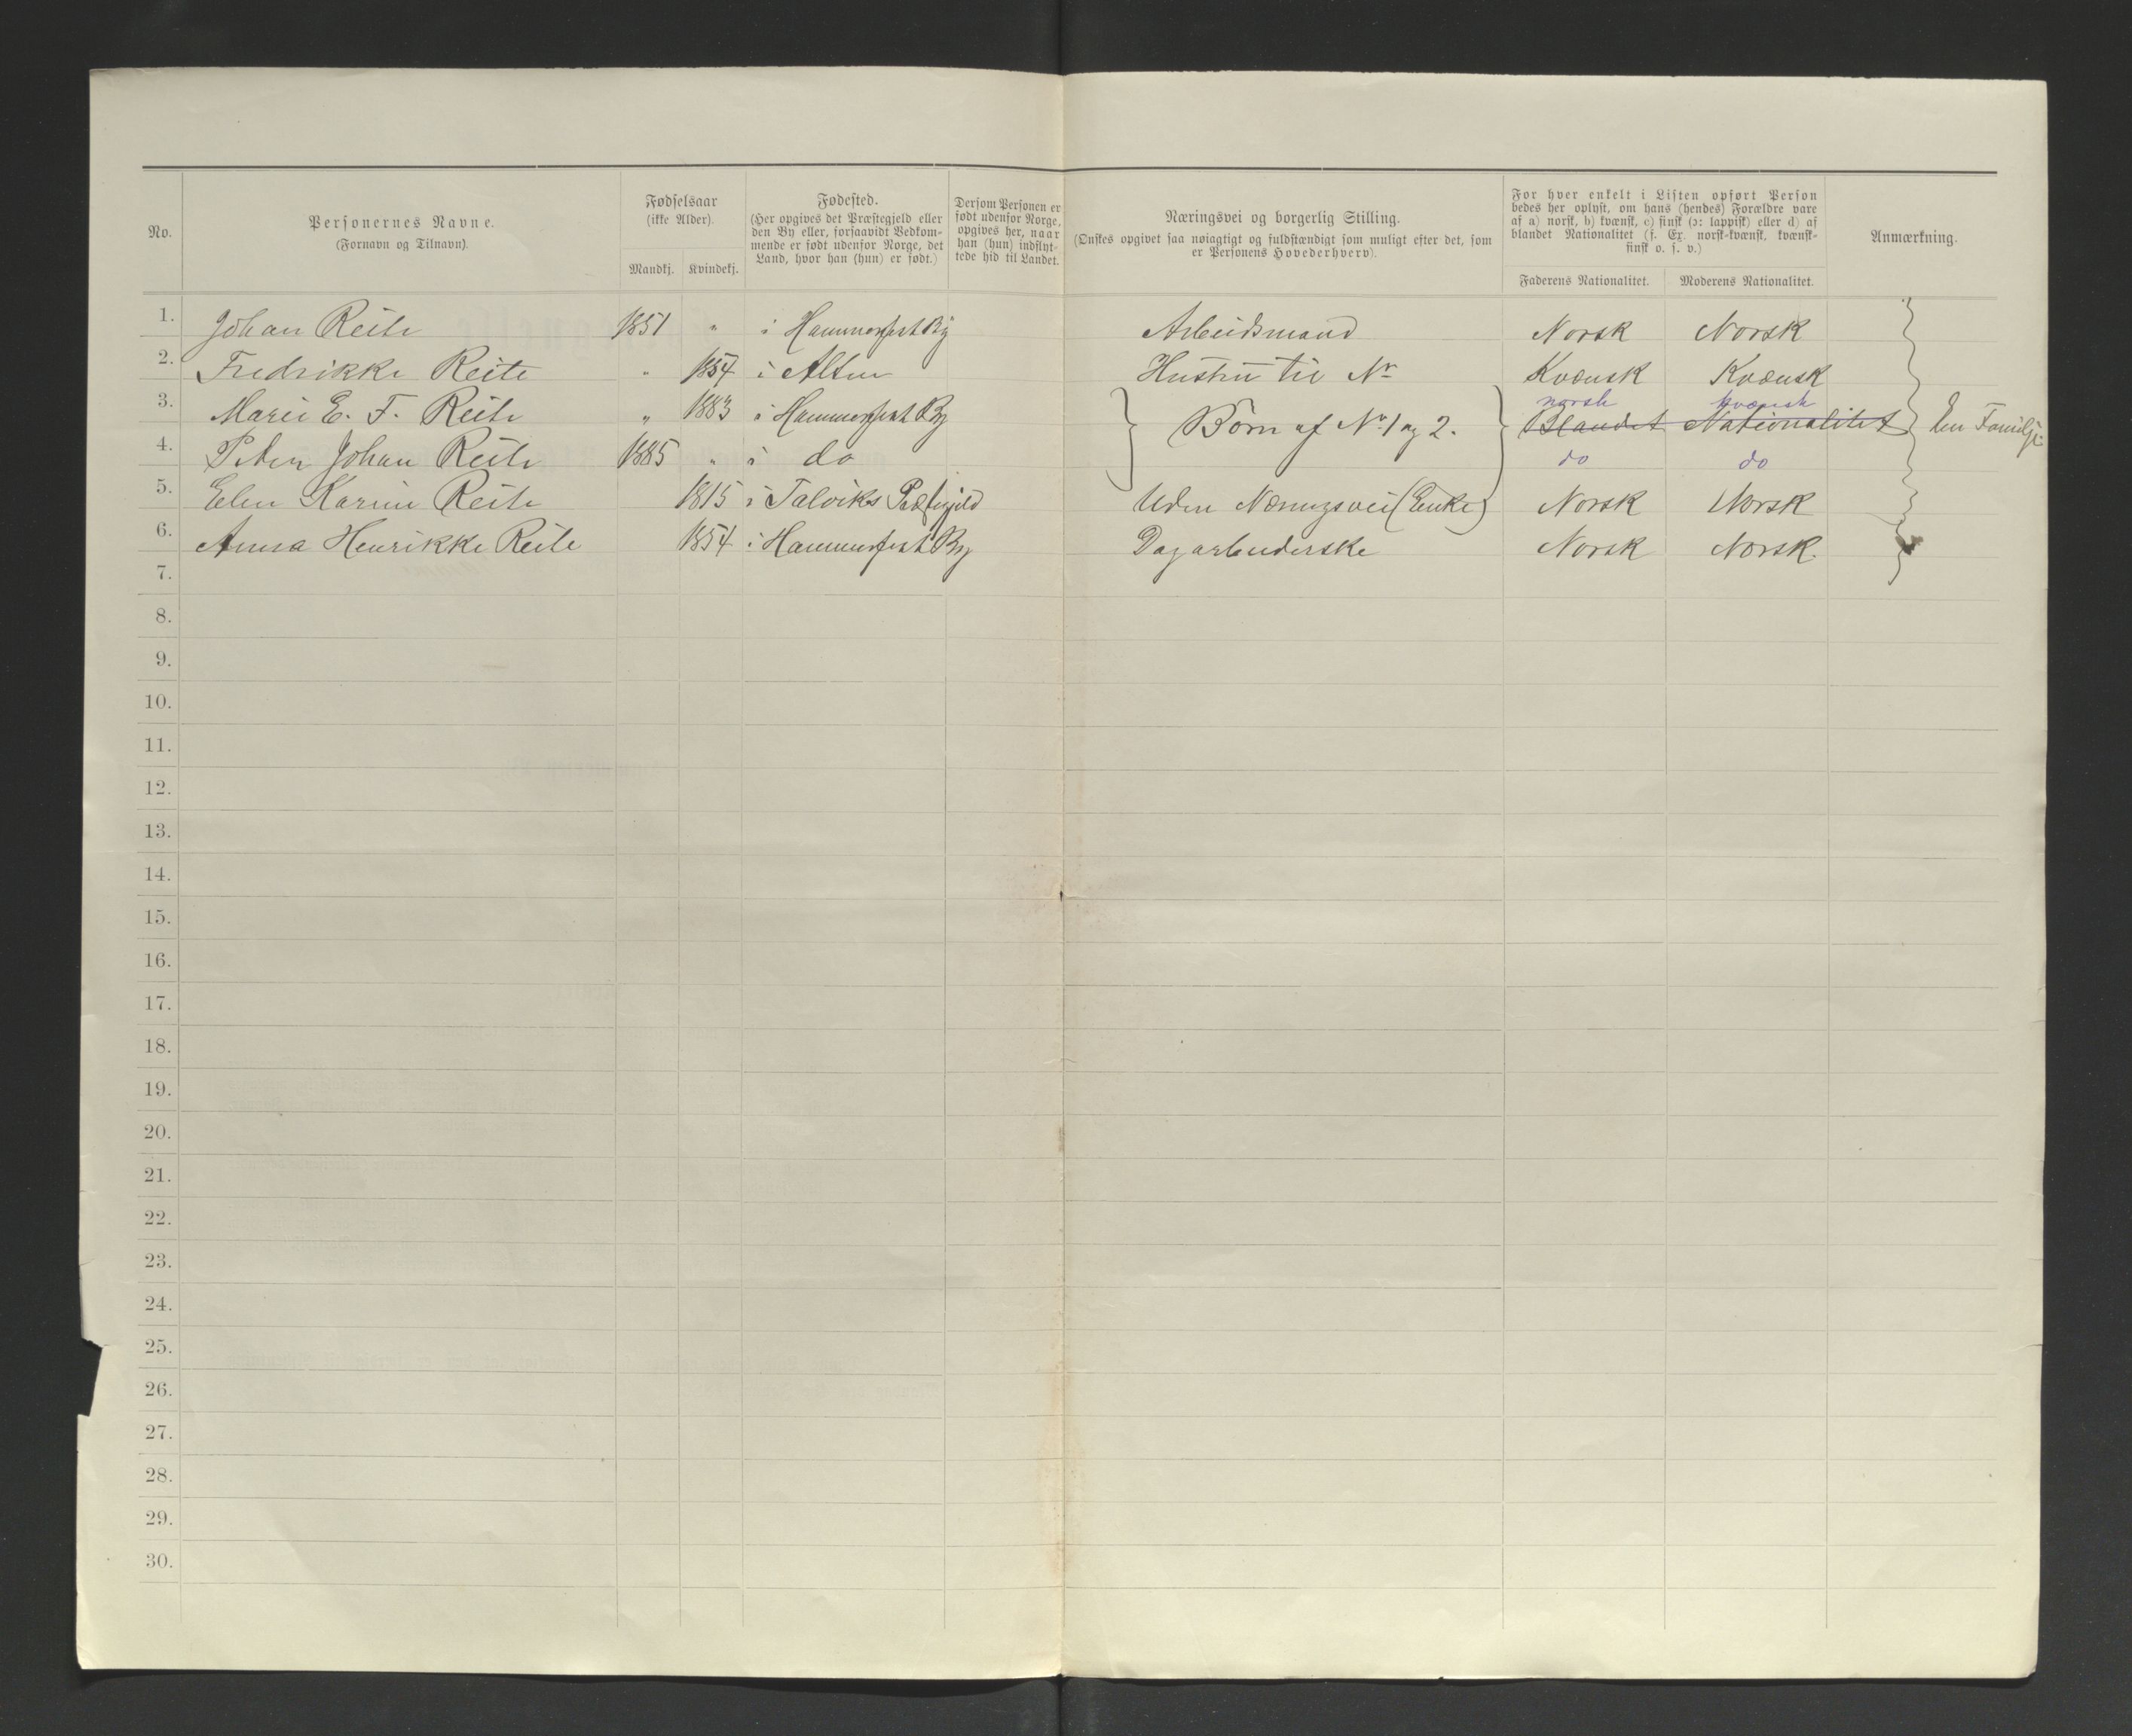 No.
Personernes Navne.
(Fornavn og Tilnavn).
Fødselsaar
(ikke Alder).
Mandkj. Kvindekj.
Fødested.
(Her opgives det Præstegjeld eller
den By eller, forsaavidt Vedkom-
mende er født udenfor Norge, det
Land, hvor han (hun) er født.)
Dersom Personen er
født udenfor Norge,
opgives her, naar
han (hun) indflyt-
tede hid til Landet.
Næringsvei og borgerlig Stilling.
(Ønskes opgivet saa nøiagtigt og fuldstændigt som muligt efter det, som
er Personens Hovederhverv).
For hver enkelt i Listen opført Person
bedes her oplyst, om hans (hendes) Forældre vare
af a) norsk, b) kvænsk, c) finsk (ɔ: lappisk) eller d) af
blandet Nationalitet (f. Ex. norsk-kvænsk, kvænsk-
finsk o. s. v.)
Faderens Nationalitet. Moderens Nationalitet.
Anmærkning.
1. Johan Reite 1851 " i Hammerfest By Arbeidsmand Norsk Norsk
2. Fredrikke Reite " 1854 i Alten Hustru til No Kvænsk Kvænsk
3. Marie E. F. Reite " 1883 i Hammerfest By norsk kvænsk
} Børn af No 1 og 2. } Blandet Nationalitet } En Familje
4. Peder Johan Reite 1885 " i do do do
5. Elen Karine Reite 1815 i Talviks Uden Næringsvei (Enke) Norsk Norsk
6. Anna Henrikke Reite 1854 i Hammerfest By Dagarbeiderske Norsk Norsk.
7.
8.
9.
10.
11.
12.
13.
14.
15.
16.
17.
18.
19.
20.
21.
22.
23.
24.
25.
26.
27.
28.
29.
30.